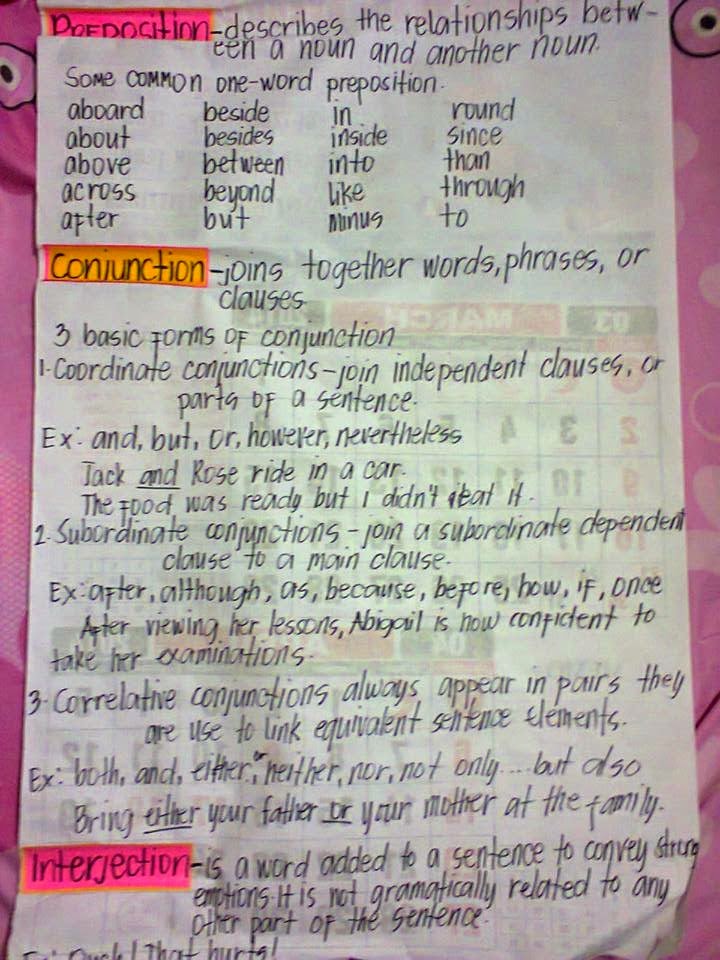 Preposition-describes the relationships betw-
een a noun and another noun.
Some common one-word preposition.
aboard beside in round
about besides inside since
above between into than
across beyond like through
after but minus to
Conjunction-joins together words, phrases, or
clauses.
3 basic forms of conjunction
1. Coordinate conjunctions-join independent clauses, or
parts of a sentence.
Ex: and, but, or, however, nevertheless
Jack and Rose ride in a car.
The food was ready but I didn't eat it.
2. Subordinate conjunctions - join a subordinate dependent
clause to a main clause.
Ex: after, although, as, because, before, how, if, once
After viewing her lessons, Abigail is now confident to
take her examinations.
3. Correlative conjunctions always appear in pairs they
are use to link equivalent sentence elements.
Ex: both, and, either, or neither, nor, not only....but also
Bring either your father or your mother at the family.
Interjection-is a word added to a sentence to convey strong
emotions. It is not gramatically related to any
other part of the sentence.
Ex: Ouch! That hurts!
03 MARCH